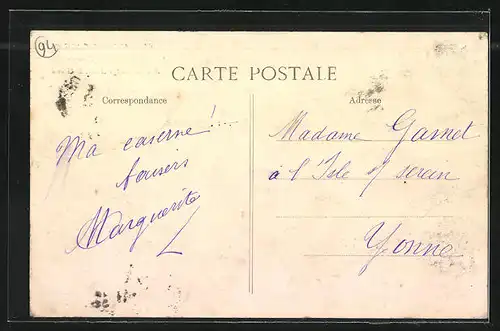 94
CARTE POSTALE
Correspondance
Adresse
Ma caserne !...
Marguerite
Madame Garnet
à l'Isle s/ serein
Yonne